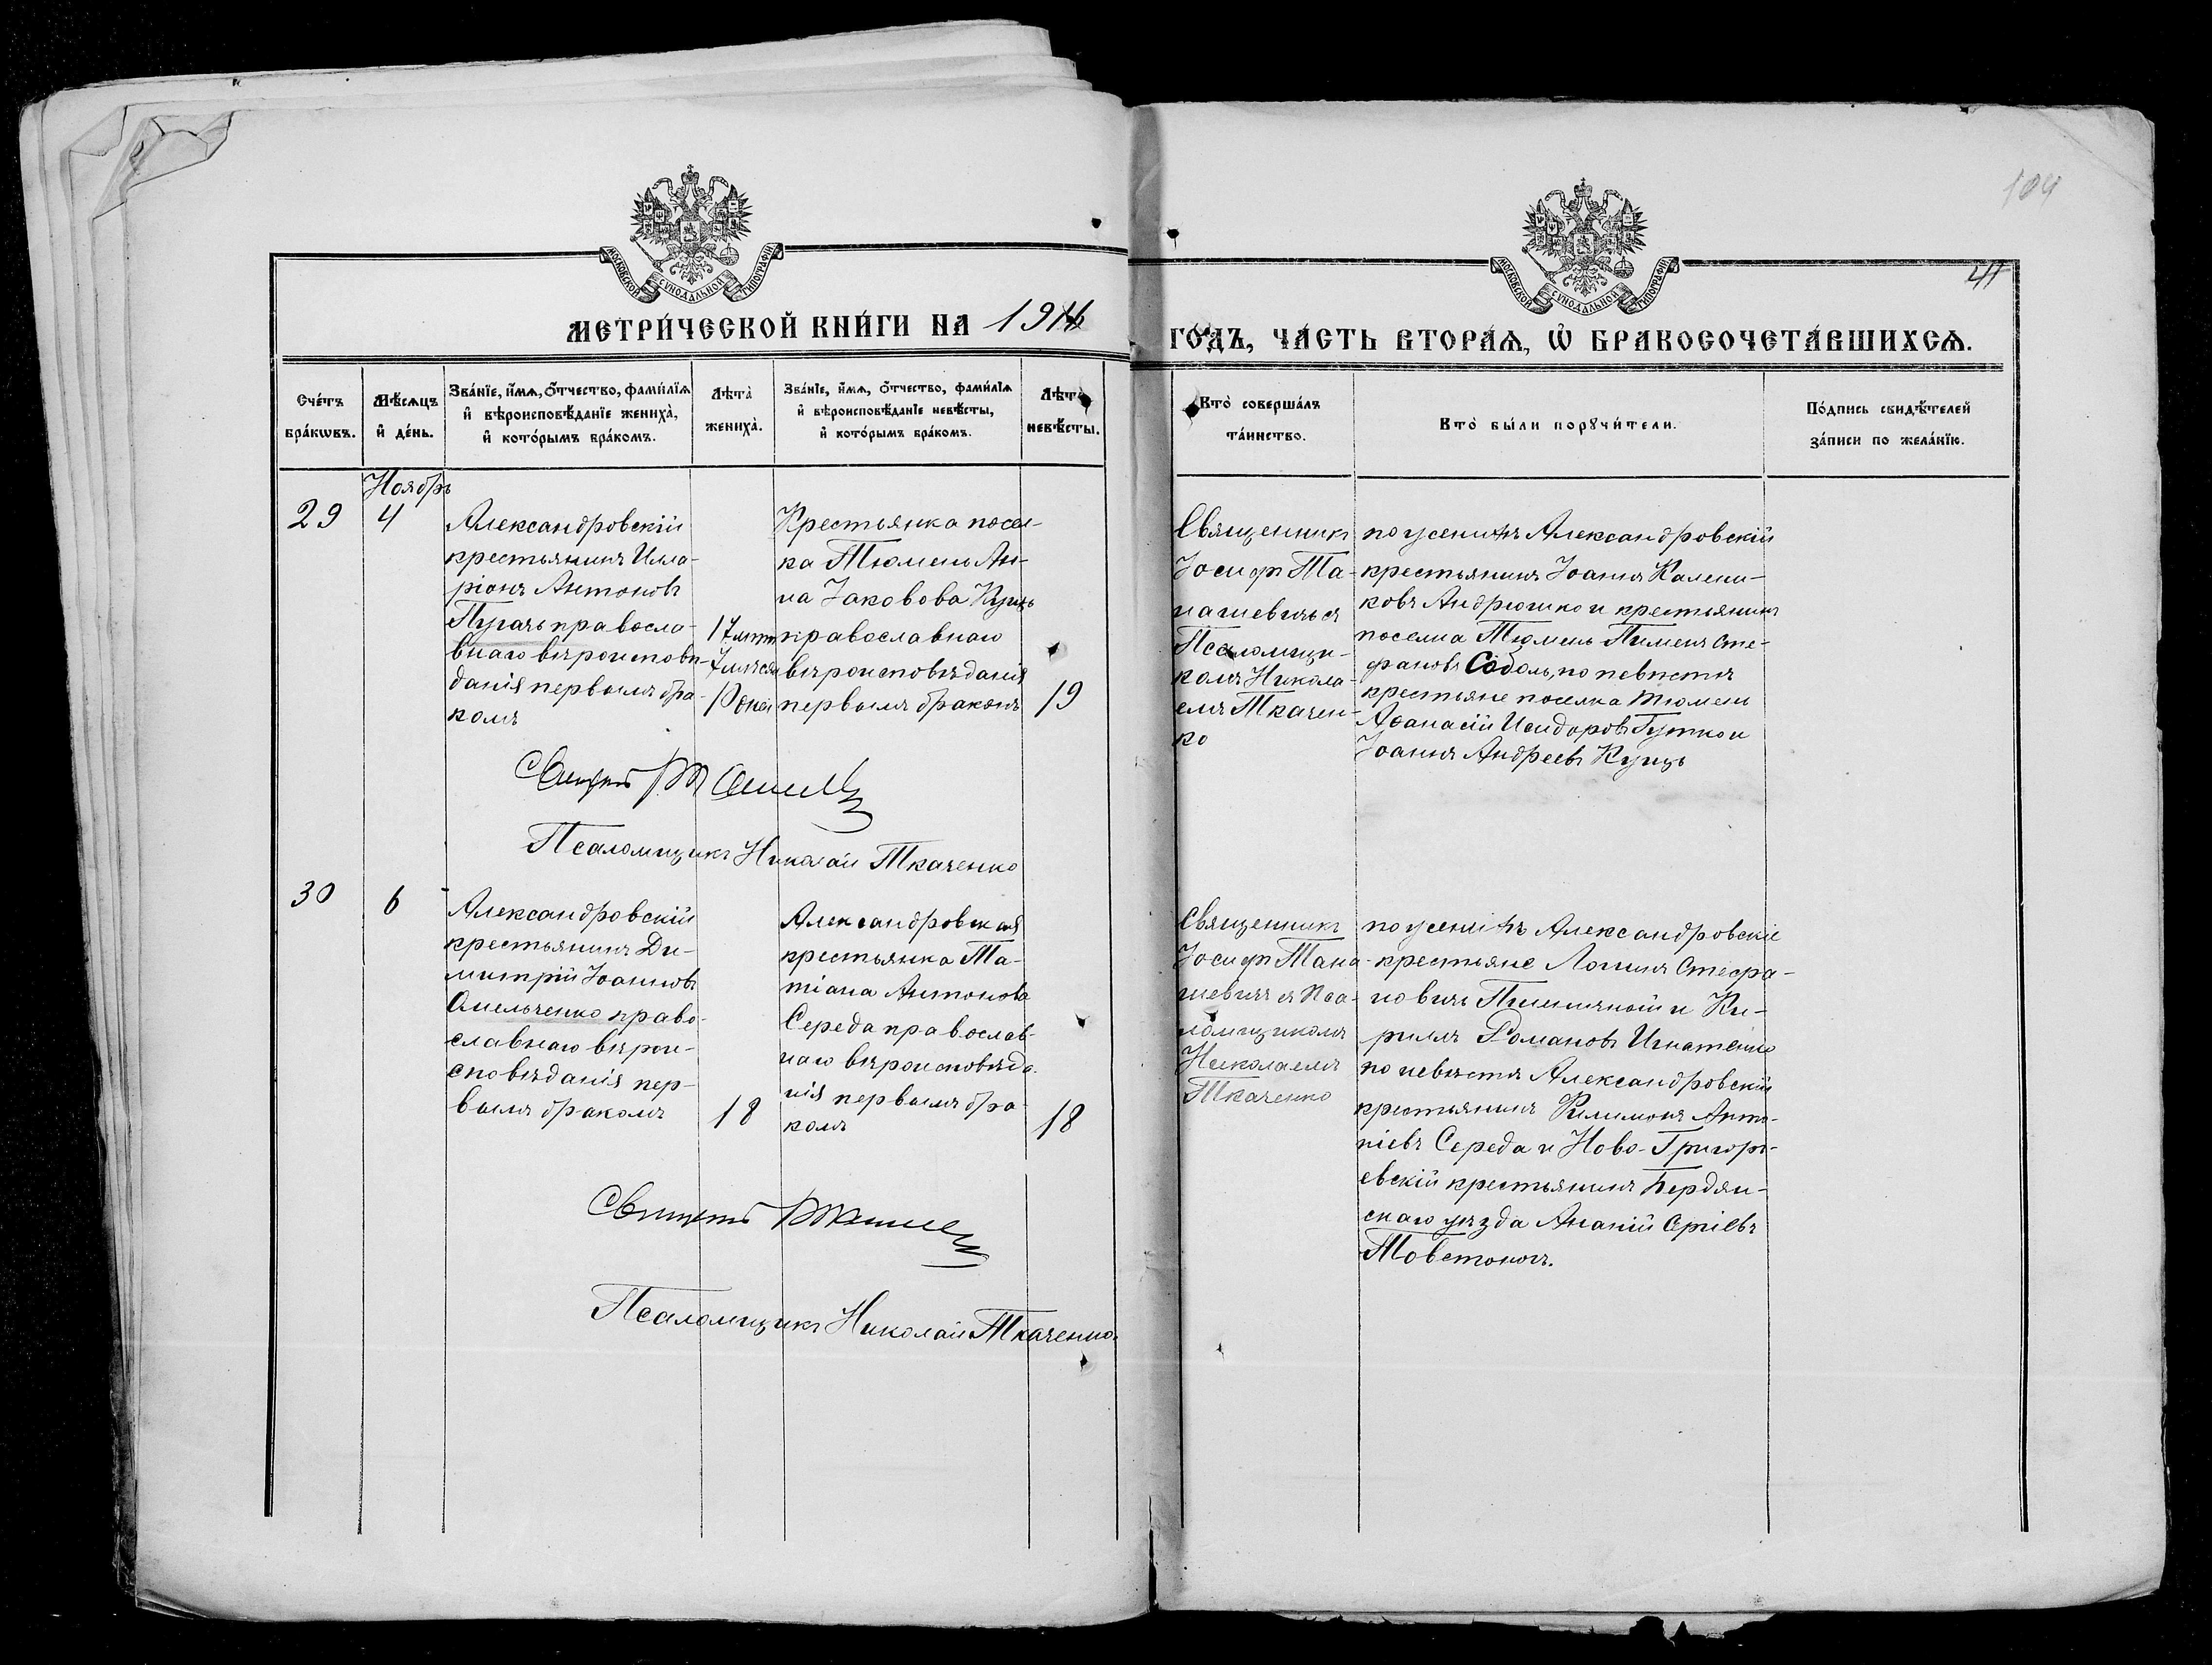 104
МОСКОВСКОЙ СУНОДАЛЬНОЙ ТИПОГРАФІИ
МОСКОВСКОЙ СУНОДАЛЬНОЙ ТИПОГРАФІИ
41
МЕТРИ́ЧЕСКОЙ КНИ́ГИ НА
ГО́ДЪ, ЧА́СТЬ ВТОРА́Ѧ, Ѽ БРАКОСОЧЕТА́ВШИХСѦ.
Сче́тъ
бра́кѡвъ.
Мѣ́сѧцъ
и҆ де́нь.
Зва́нїе, и҆́мѧ, ѻ҆́тчество, фами́лїѧ
и҆ вѣроисповѣ́данїе жениха̀,
и҆ кото́рымъ бра́комъ.
Лѣта̀
жениха̀.
Зва́нїе, и҆́мѧ, ѻ҆́тчество, фами́лїѧ
и҆ вѣроисповѣ́данїе невѣ́сты,
и҆ кото́рымъ бра́комъ.
Лѣта̀
невѣ́сты.
Кто̀ соверша́лъ
та́инство.
Кто̀ бы́ли порꙋчи́тели.
По́дпись свидѣ́телей
за́писи по жела́нїю.
29
Ноябрь
4
Александровскій
крестьянинъ Ила-
ріонъ Антоновъ
Пугачъ правосла-
внаго вѣроисповѣ-
данія первымъ бра-
комъ
17 лѣтъ
7 мѣсяц
10 дней
Крестьянка посел-
ка Тюмень Ан-
на Іаковова Куцъ
православнаго
вѣроисповѣданія
первымъ бракомъ
19
Священникъ
Іосифъ Та-
нашевичъ съ
Псаломщи-
комъ Никола-
емъ Ткачен-
ко
по женихѣ Александровскій
крестьянинъ Іоаннъ Калени-
ковъ Андрюшко и крестьянинъ
поселка Тюмень Пименъ Сте-
фановъ Соболь, по невѣстѣ
крестьяне поселка Тюмень
Аѳанасій Исидоровъ Гутко и
Іоаннъ Андреевъ Куцъ
Псаломщикъ Николай Ткаченко
30
6
Александровскій
крестьянинъ Ди-
митрій Іоанновъ
Омельченко право-
славнаго вѣрои-
сповѣданія пер-
вымъ бракомъ
18
Александровская
крестьянка Та-
тіана Антонова
Середа православ-
наго вѣроисповѣда-
нія первымъ бра-
комъ
18
Священникъ
Іосифъ Тана-
шевичъ съ Пса-
ломщикомъ
Николаемъ
Ткаченко
по женихѣ Александровскіе
крестьяне Логинъ Стефа-
новичъ Пшеничной и Ки-
риллъ Романовъ Игнатенко
по невѣстѣ Александровскій
крестьянинъ Филимонъ Анто-
ніевъ Середа и Ново-Григорь-
евскій крестьянинъ Бердян-
скаго уѣзда Ананій
Товстоногъ.
Псаломщикъ Николай Ткаченко.